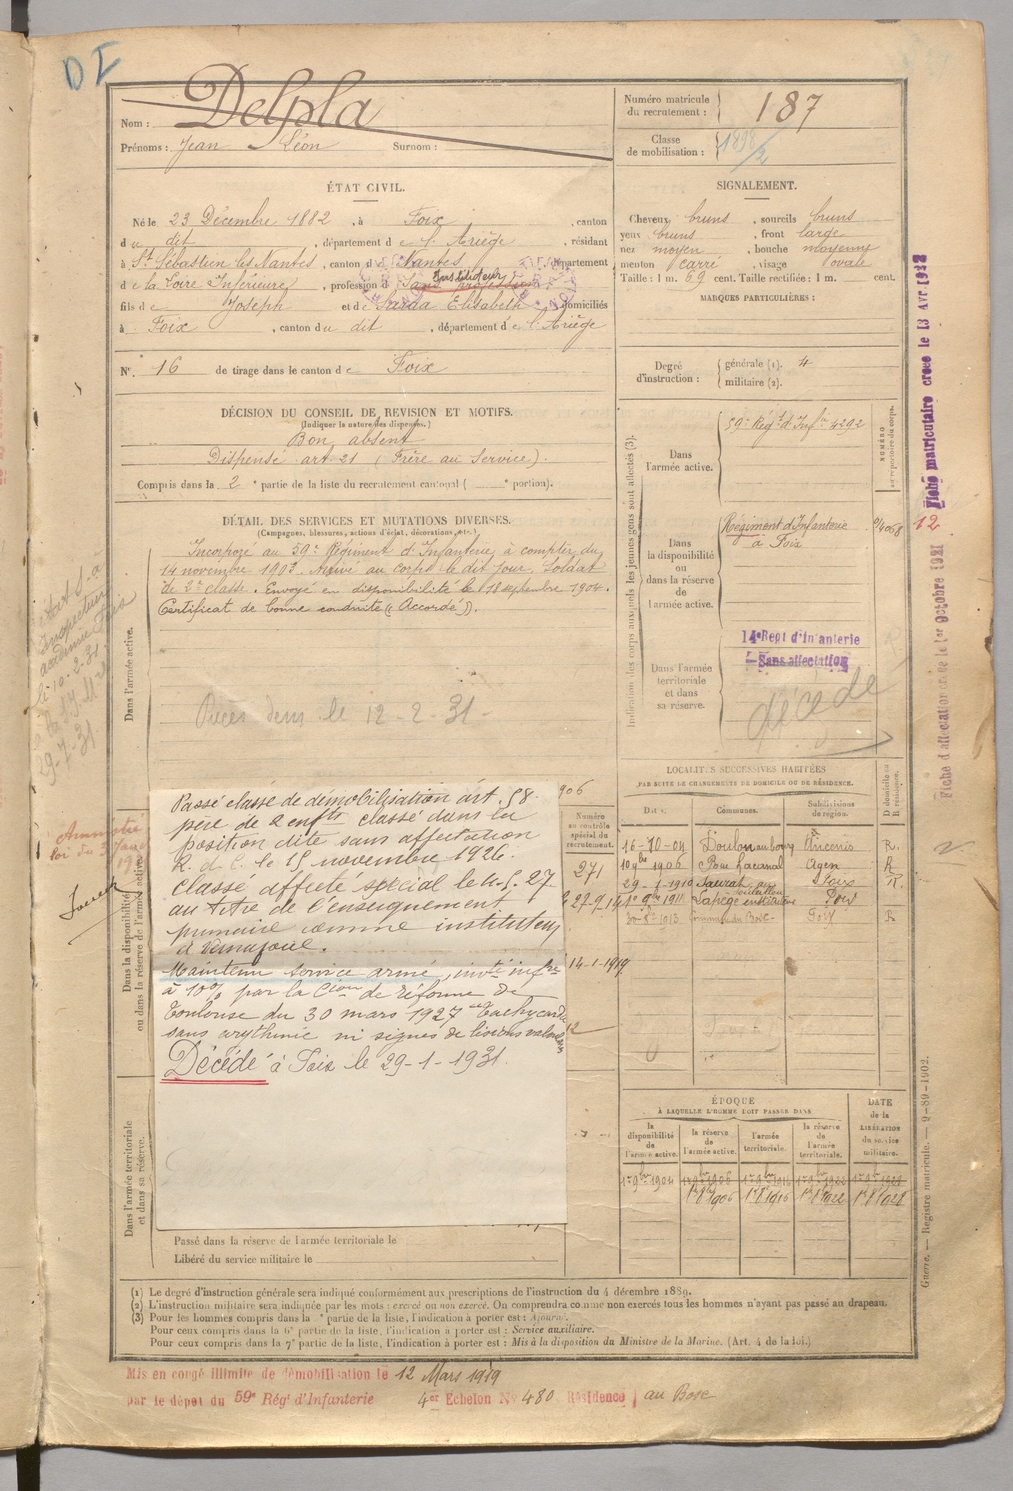 DI
Nom : Delpla
Prénoms : Jean Léon Surnom :
Numéro matricule du recrutement : 187
Classe de mobilisation : 1898/2
ÉTAT CIVIL.
Né le 23 Décembre 1882, à Foix, canton
du dit, département de l'Ariège, résidant
à St Sébastien les Nantes, canton de Nantes, département
de la Loire Inférieure, profession de Instituteur
fils de Joseph et de Sarda Elisabeth domiciliés
à Foix, canton du dit, département de l'Ariège
N° 16 de tirage dans le canton de Foix
SIGNALEMENT.
Cheveux bruns, sourcils bruns
yeux bruns, front large
nez moyen, bouche moyenne
menton carré, visage ovale
Taille : 1 m. 69 cent. Taille rectifiée : 1 m. cent.
MARQUES PARTICULIÈRES :
Degré d'instruction : générale (1). 4
militaire (2).
DÉCISION DU CONSEIL DE REVISION ET MOTIFS.
(Indiquer la nature des dispenses.)
Bon absent
Dispensé art 21 (Frère au Service).
Compris dans la 2e partie de la liste du recrutement cantonal ( e portion).
DÉTAIL DES SERVICES ET MUTATIONS DIVERSES.
(Campagnes, blessures, actions d'éclat, décorations, etc.)
Dans l'armée active.
Incorporé au 59e Régiment d'Infanterie à compter du
14 novembre 1903. Arrivé au corps le dit jour. Soldat
de 2e classe. Envoyé en disponibilité le 18 septembre 1904.
Certificat de bonne conduite (Accordé).
le 12-2-31
906
Passé classe de démobilisation art. 58.
père de 2 enfts classé dans la
position dite sans affectation
R. d. C. le 15 novembre 1926.
Classé affecté spécial le 4-5-27
au titre de l'enseignement
primaire comme instituteur
à
Maintenu service armé, invté infre
à 10% par la Cion de réforme de
Toulouse du 30 mars 1927
sans arythmie ni signes de lésions
Décédé à Foix le 29-1-1931.
Dans la disponibilité ou dans la réserve de l'armée active
Dans l'armée territoriale et dans sa réserve.
Passé dans la réserve de l'armée territoriale le
Libéré du service militaire le
Indication des corps auxquels les jeunes gens sont affectés (3).
NUMÉRO au répertoire du corps.
Dans l'armée active.
59e Régt d'Infie 4292
Dans la disponibilité ou dans la réserve de l'armée active.
Régiment d'Infanterie
à Foix
Dans l'armée territoriale et dans sa réserve.
14e Regt d'Infanterie
Sans affectation
décédé
Fiche matriculaire créée le 13 Avr 1928
12
Fiche d'affectation créée le 1er Octobre 1921
LOCALITÉS SUCCESSIVES HABITÉES
PAR SUITE DE CHANGEMENTS DE DOMICILE OU DE RÉSIDENCE.
Numéro au contrôle spécial du recrutement.
Dates.
Communes.
Subdivisions de région.
D domicile ou R résidence.
Ancenis R.
271
10 9bre 1906 Agen R
29-1-1910 Saurat Foix R.
27-9-14
Foix
Foix R
14-1-1919
ÉPOQUE
À LAQUELLE L'HOMME DOIT PASSER DANS
DATE de la LIBÉRATION du service militaire.
la disponibilité de l'armée active.
la réserve de l'armée active.
l'armée territoriale.
la réserve de l'armée territoriale.
1er 9bre 1904 1er 9bre 1906
1er 8bre 1906 1er 8bre 1916 1er 8bre 1922 1er 8bre 1928
(1) Le degré d'instruction générale sera indiqué conformément aux prescriptions de l'instruction du 4 décembre 1889.
(2) L'instruction militaire sera indiquée par les mots : exercé ou non exercé. On comprendra comme non exercés tous les hommes n'ayant pas passé au drapeau.
(3) Pour les hommes compris dans la e partie de la liste, l'indication à porter est : Ajourné.
Pour ceux compris dans la 6e partie de la liste, l'indication à porter est : Service auxiliaire.
Pour ceux compris dans la 7e partie de la liste, l'indication à porter est : Mis à la disposition du Ministre de la Marine. (Art. 4 de la loi.)
Guerre. — Registre matricule. — 9-89-1902.
Mis en congé illimité de démobilisation le 12 Mars 1919
par le dépôt du 59e Régt d'Infanterie 4er Echelon No 480 Résidence au Bosc